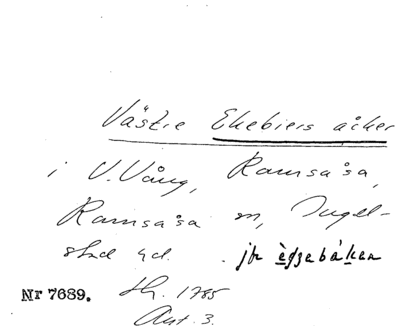 Västre Ekebiers åcker
i V. Vång, Ramsåsa,
Ramsåsa sn, Ingel-
stad hd. jfr
Nr 7689. Sk. 1785
Akt. 3.